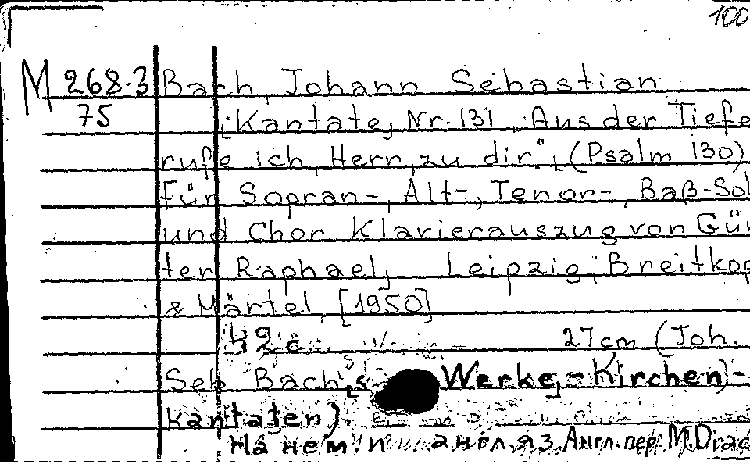 100
M 268-3 Bach, Johann Sebastian
75 [Kantate, Nr. 131 „Aus der Tiefe
rufe ich, Herr, zu dir", (Psalm 130)
für Sopran-, Alt-, Tenor-, Baß-Sol
und Chor Klavierauszug von Gün
ter Raphael, Leipzig, Breitkop
& Härtel, [1950]
42 c. 27 cm (Joh.
Seb. Bach's Werke, - Kirchen)-
kantaten)
На нем. и англ. яз. Англ. пер. M. Drac